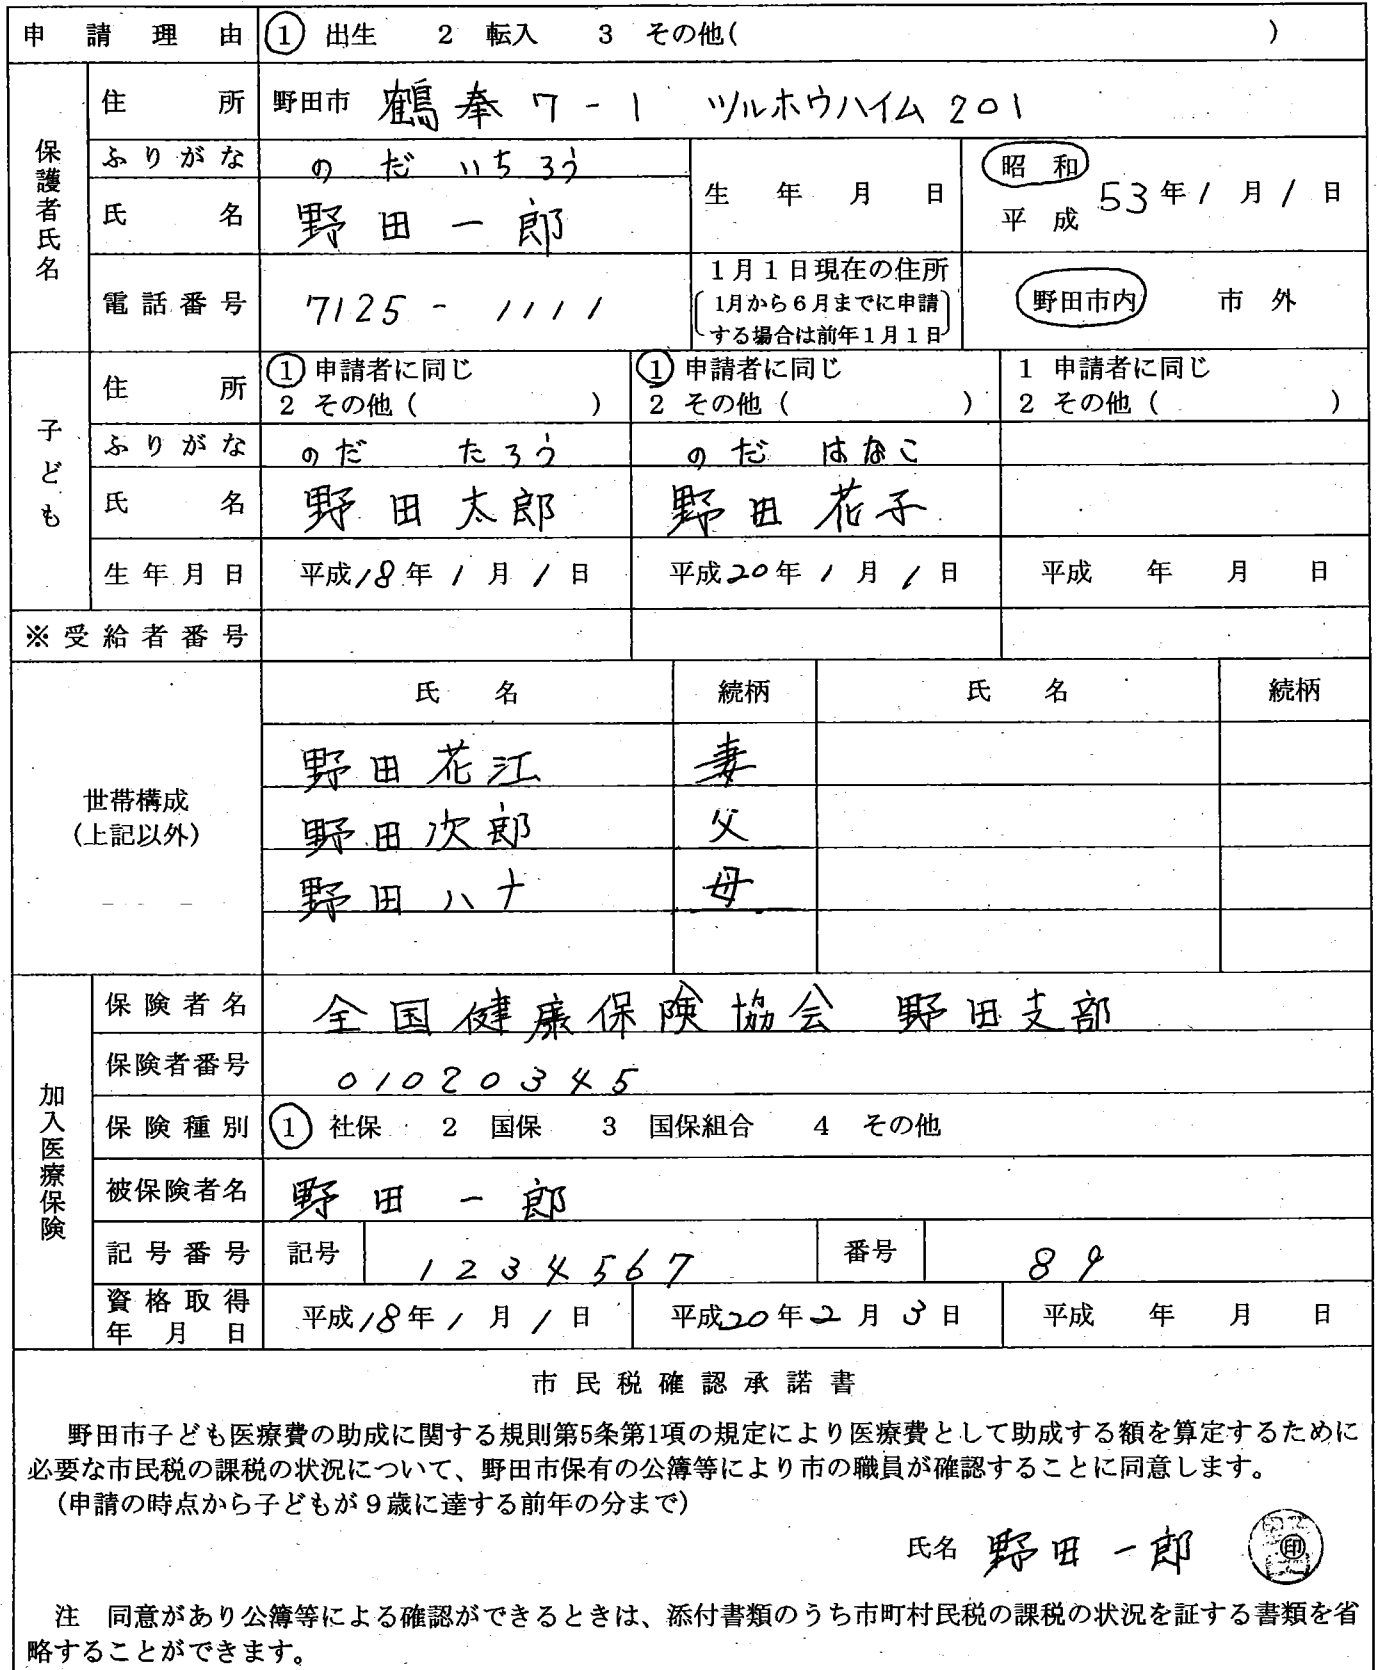 申請理由 ① 出生 2 転入 3 その他( )
保護者氏名
住所 野田市 鶴奉7-1 ツルホウハイム201
ふりがな のだ いちろう
氏名 野田一郎
生年月日 昭和 平成 53年1月1日
電話番号 7125-1111
1月1日現在の住所
(1月から6月までに申請
する場合は前年1月1日)
野田市内 市外
子ども
住所 ① 申請者に同じ ① 申請者に同じ 1 申請者に同じ
2 その他( ) 2 その他( ) 2 その他( )
ふりがな のだ たろう のだ はなこ
氏名 野田太郎 野田花子
生年月日 平成18年1月1日 平成20年1月1日 平成 年 月 日
※受給者番号
世帯構成
(上記以外)
氏名 続柄 氏名 続柄
野田花江 妻
野田次郎 父
野田ハナ 母
加入医療保険
保険者名 全国健康保険協会 野田支部
保険者番号 01020345
保険種別 ① 社保 2 国保 3 国保組合 4 その他
被保険者名 野田一郎
記号番号 記号 1234567 番号 89
資格取得
年月日 平成18年1月1日 平成20年2月3日 平成 年 月 日
市民税確認承諾書
野田市子ども医療費の助成に関する規則第5条第1項の規定により医療費として助成する額を算定するために
必要な市民税の課税の状況について、野田市保有の公簿等により市の職員が確認することに同意します。
(申請の時点から子どもが9歳に達する前年の分まで)
氏名 野田一郎 印
注 同意があり公簿等による確認ができるときは、添付書類のうち市町村民税の課税の状況を証する書類を省
略することができます。